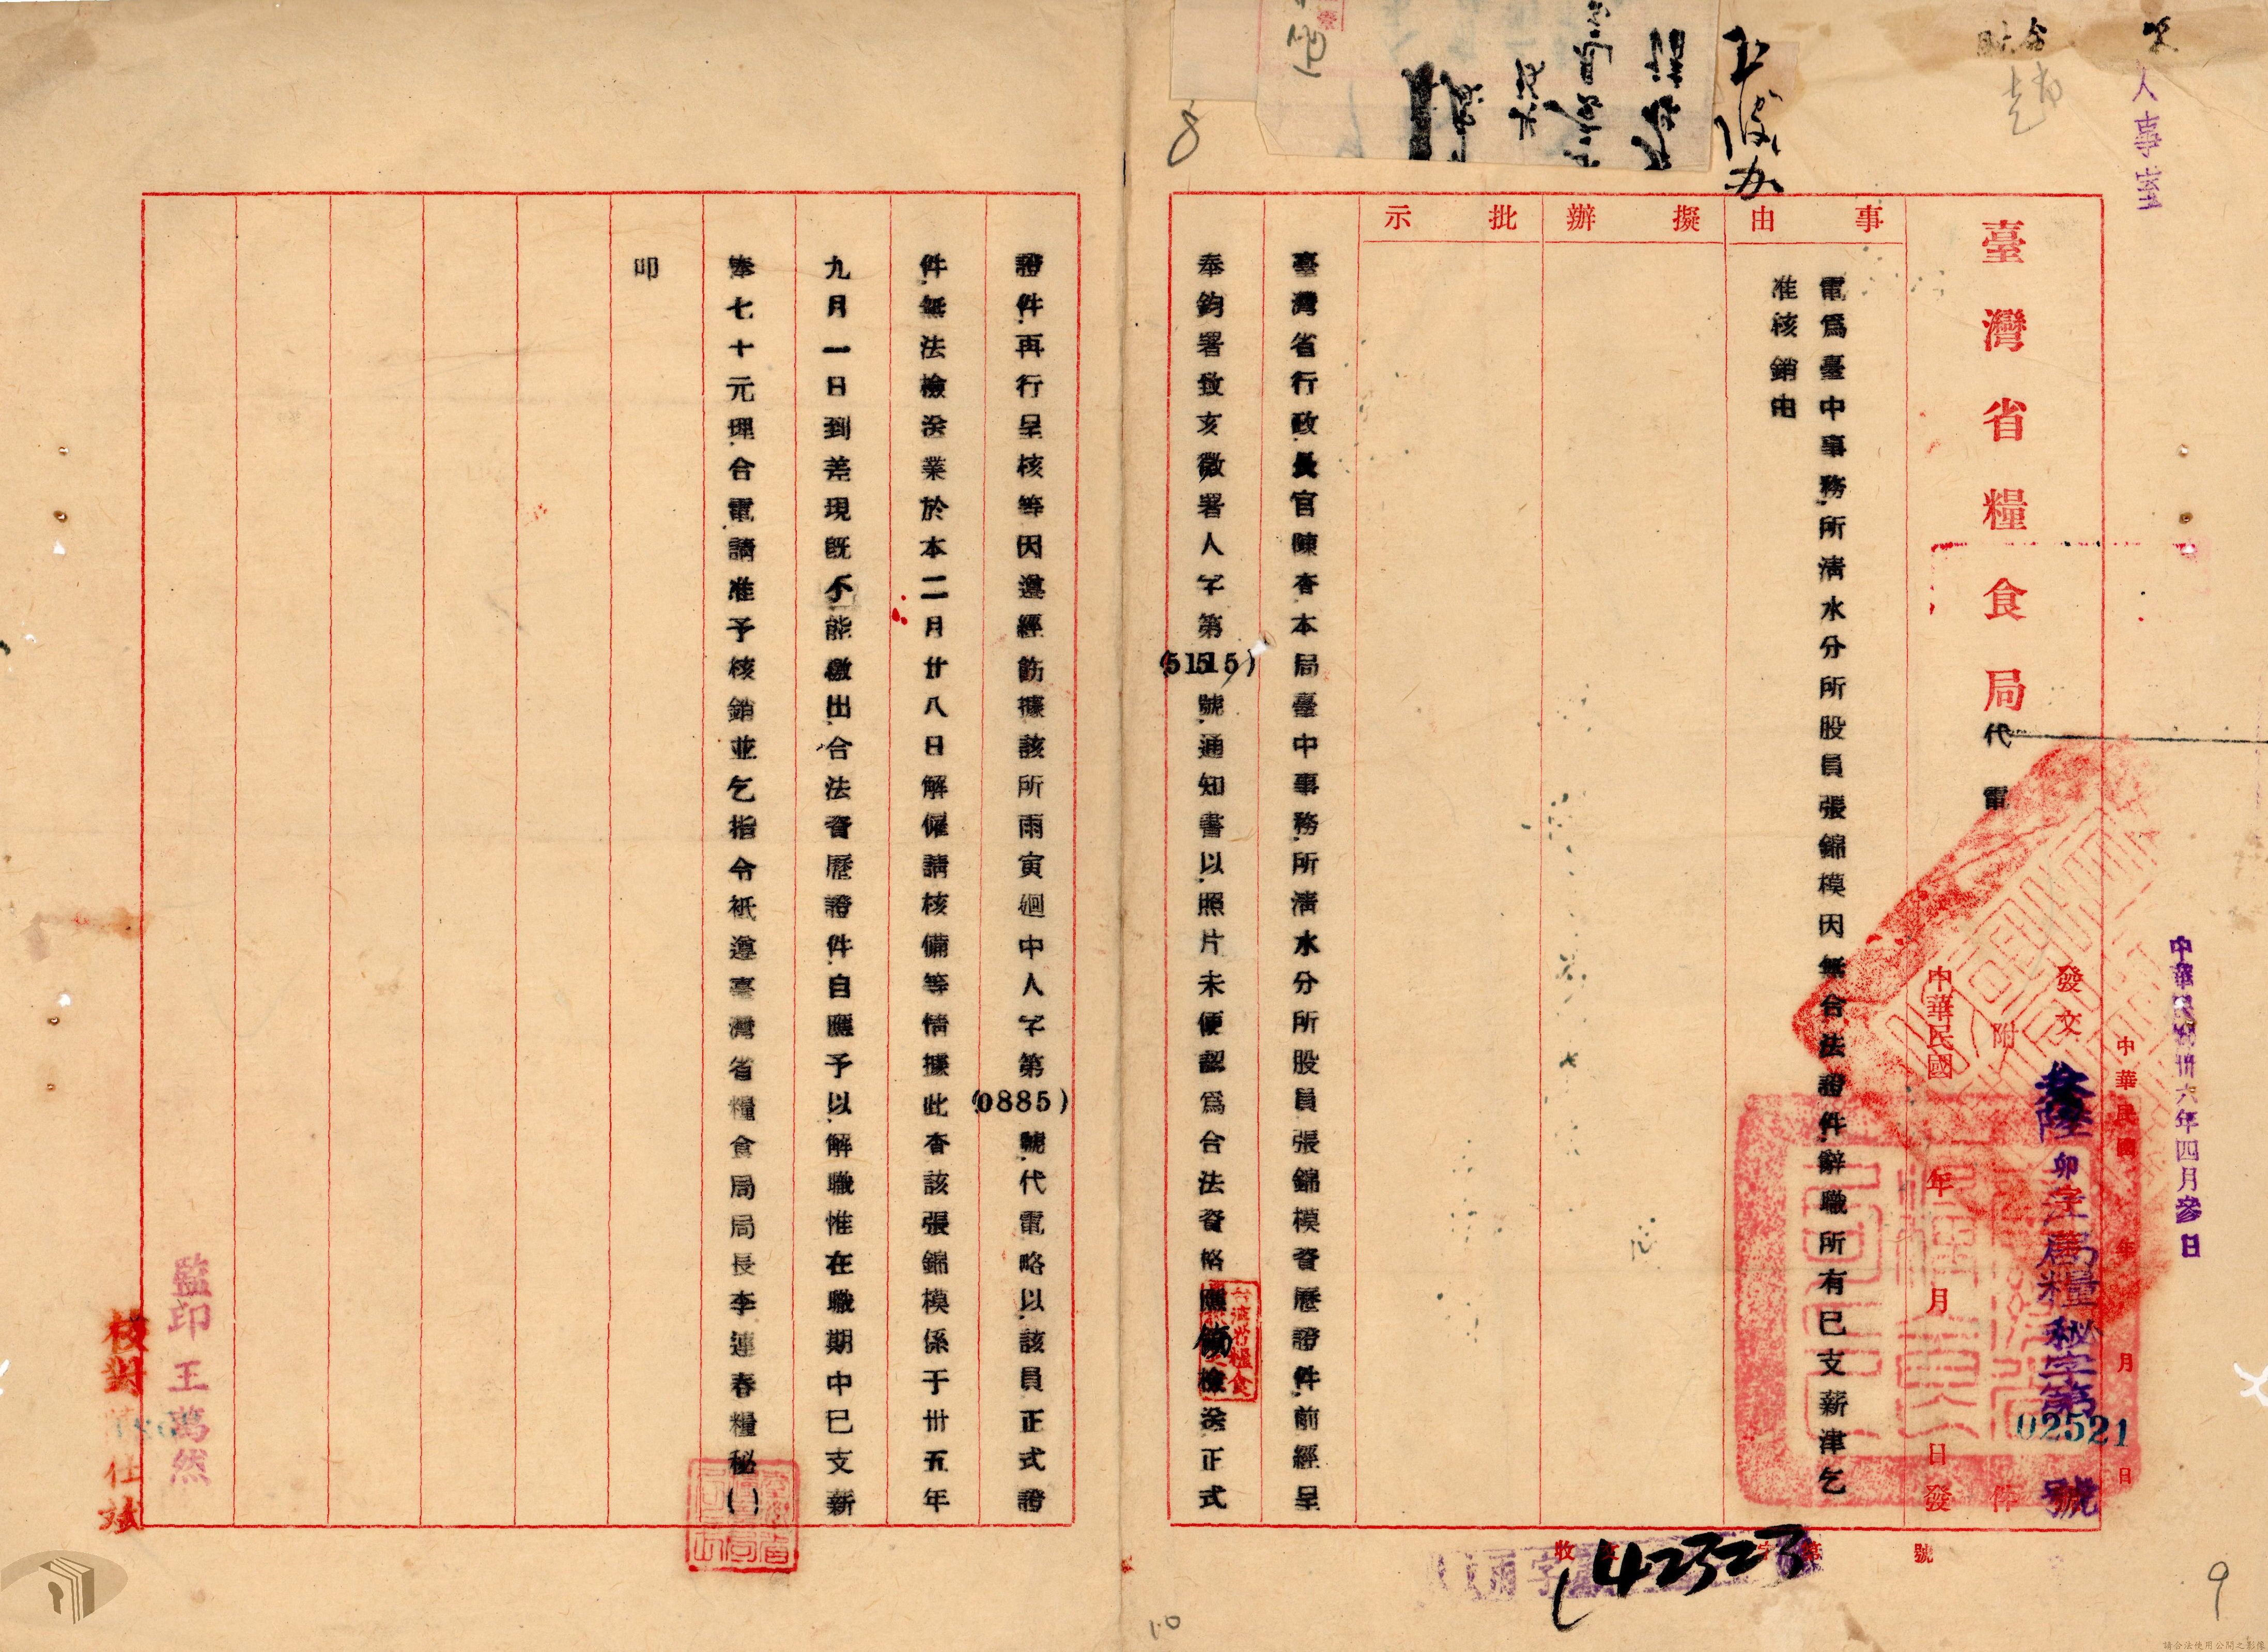 人事室
臺灣省糧食局代電
中華民國卅六年四月參日
中華民國 年 月 日
發文 叁陸卯字局糧秘字第02521號
附 件
中華民國 年 月 日發
事由
電為臺中事務所清水分所股員張錦模因無合法證件辭職所有已支薪津乞
准核銷由
擬辦
批示
臺灣省行政長官陳查本局臺中事務所清水分所股員張錦模資歷證件前經呈
奉鈞署致亥微署人字第(5115)號通知書以照片未便認為合法資格應飭檢送正式
證件再行呈核等因遵經飭據該所雨寅迴中人字第(0885)號代電略以該員正式證
件無法檢送業於本二月廿八日解僱請核備等情據此查該張錦模係于卅五年
九月一日到差現既不能繳出合法資歷證件自應予以解職惟在職期中已支薪
奉七十元理合電請准予核銷並乞指令祇遵臺灣省糧食局局長李連春糧秘( )
叩
監印 王萬然
核對
收文 字第 號
42323
8
9
10
請合法使用公開之影像